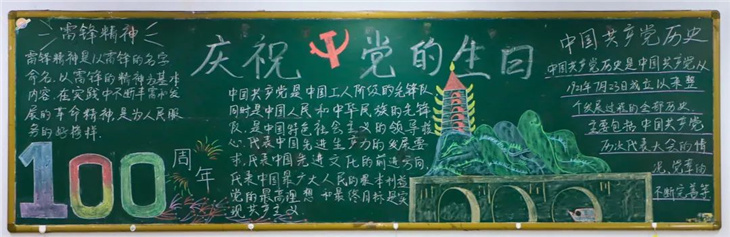 庆祝党的生日
雷锋精神
雷锋精神是以雷锋的名字
命名,以雷锋的精神为基本
内容,在实践中不断丰富和发
展的革命精神,是为人民服
务的好榜样.
100周年
中国共产党是中国工人阶级的先锋队
同时是中国人民和中华民族的先锋
队,是中国特色社会主义的领导核
心,代表中国先进生产力的发展要
求,代表中国先进文化的前进方向,
代表中国最广大人民的根本利益
党的最高理想和最终目标是实
现共产主义.
中国共产党历史
中国共产党历史是中国共产党从
1921年7月23日成立以来整
个发展过程的全部历史
主要包括中国共产党
历次代表大会的情
况,党章的
不断完善等